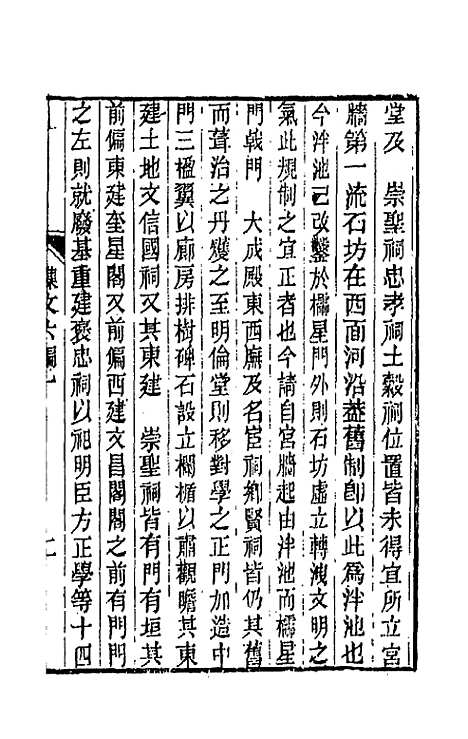 堂及　崇聖祠忠孝祠土穀祠位置皆未得宜所立宮
牆第一流石坊在西面河沿葢舊制卽以此爲泮池也
今泮池已改鑿於櫺星門外則石坊虛立轉洩文明之
氣此規制之宜正者也今請自宮牆起由泮池而櫺星
門戟門　大成殿東西廡及名宦祠鄉賢祠皆仍其舊
而葺治之丹雘之至明倫堂則移對學之正門加造中
門三楹翼以廊房排樹碑石設立欄楯以肅觀瞻其東
建土地文信國祠又其東建　崇聖祠皆有門有垣其
前偏東建奎星閣又前偏西建文昌閣閣之前有門門
之左則就廢基重建褒忠祠以祀明臣方正學等十四
文六編七
七